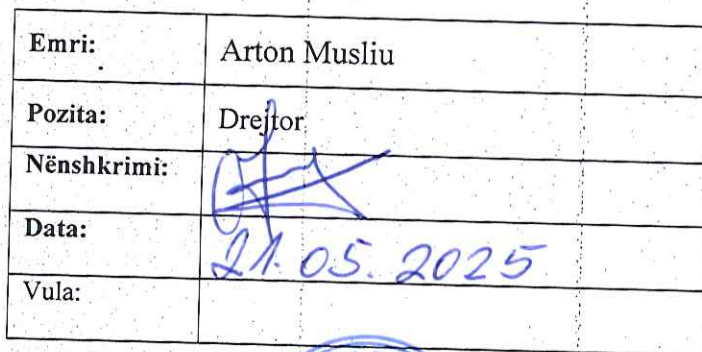 Emri: Arton Musliu
Pozita: Drejtor
Nënshkrimi:
Data: 21.05.2025
Vula: